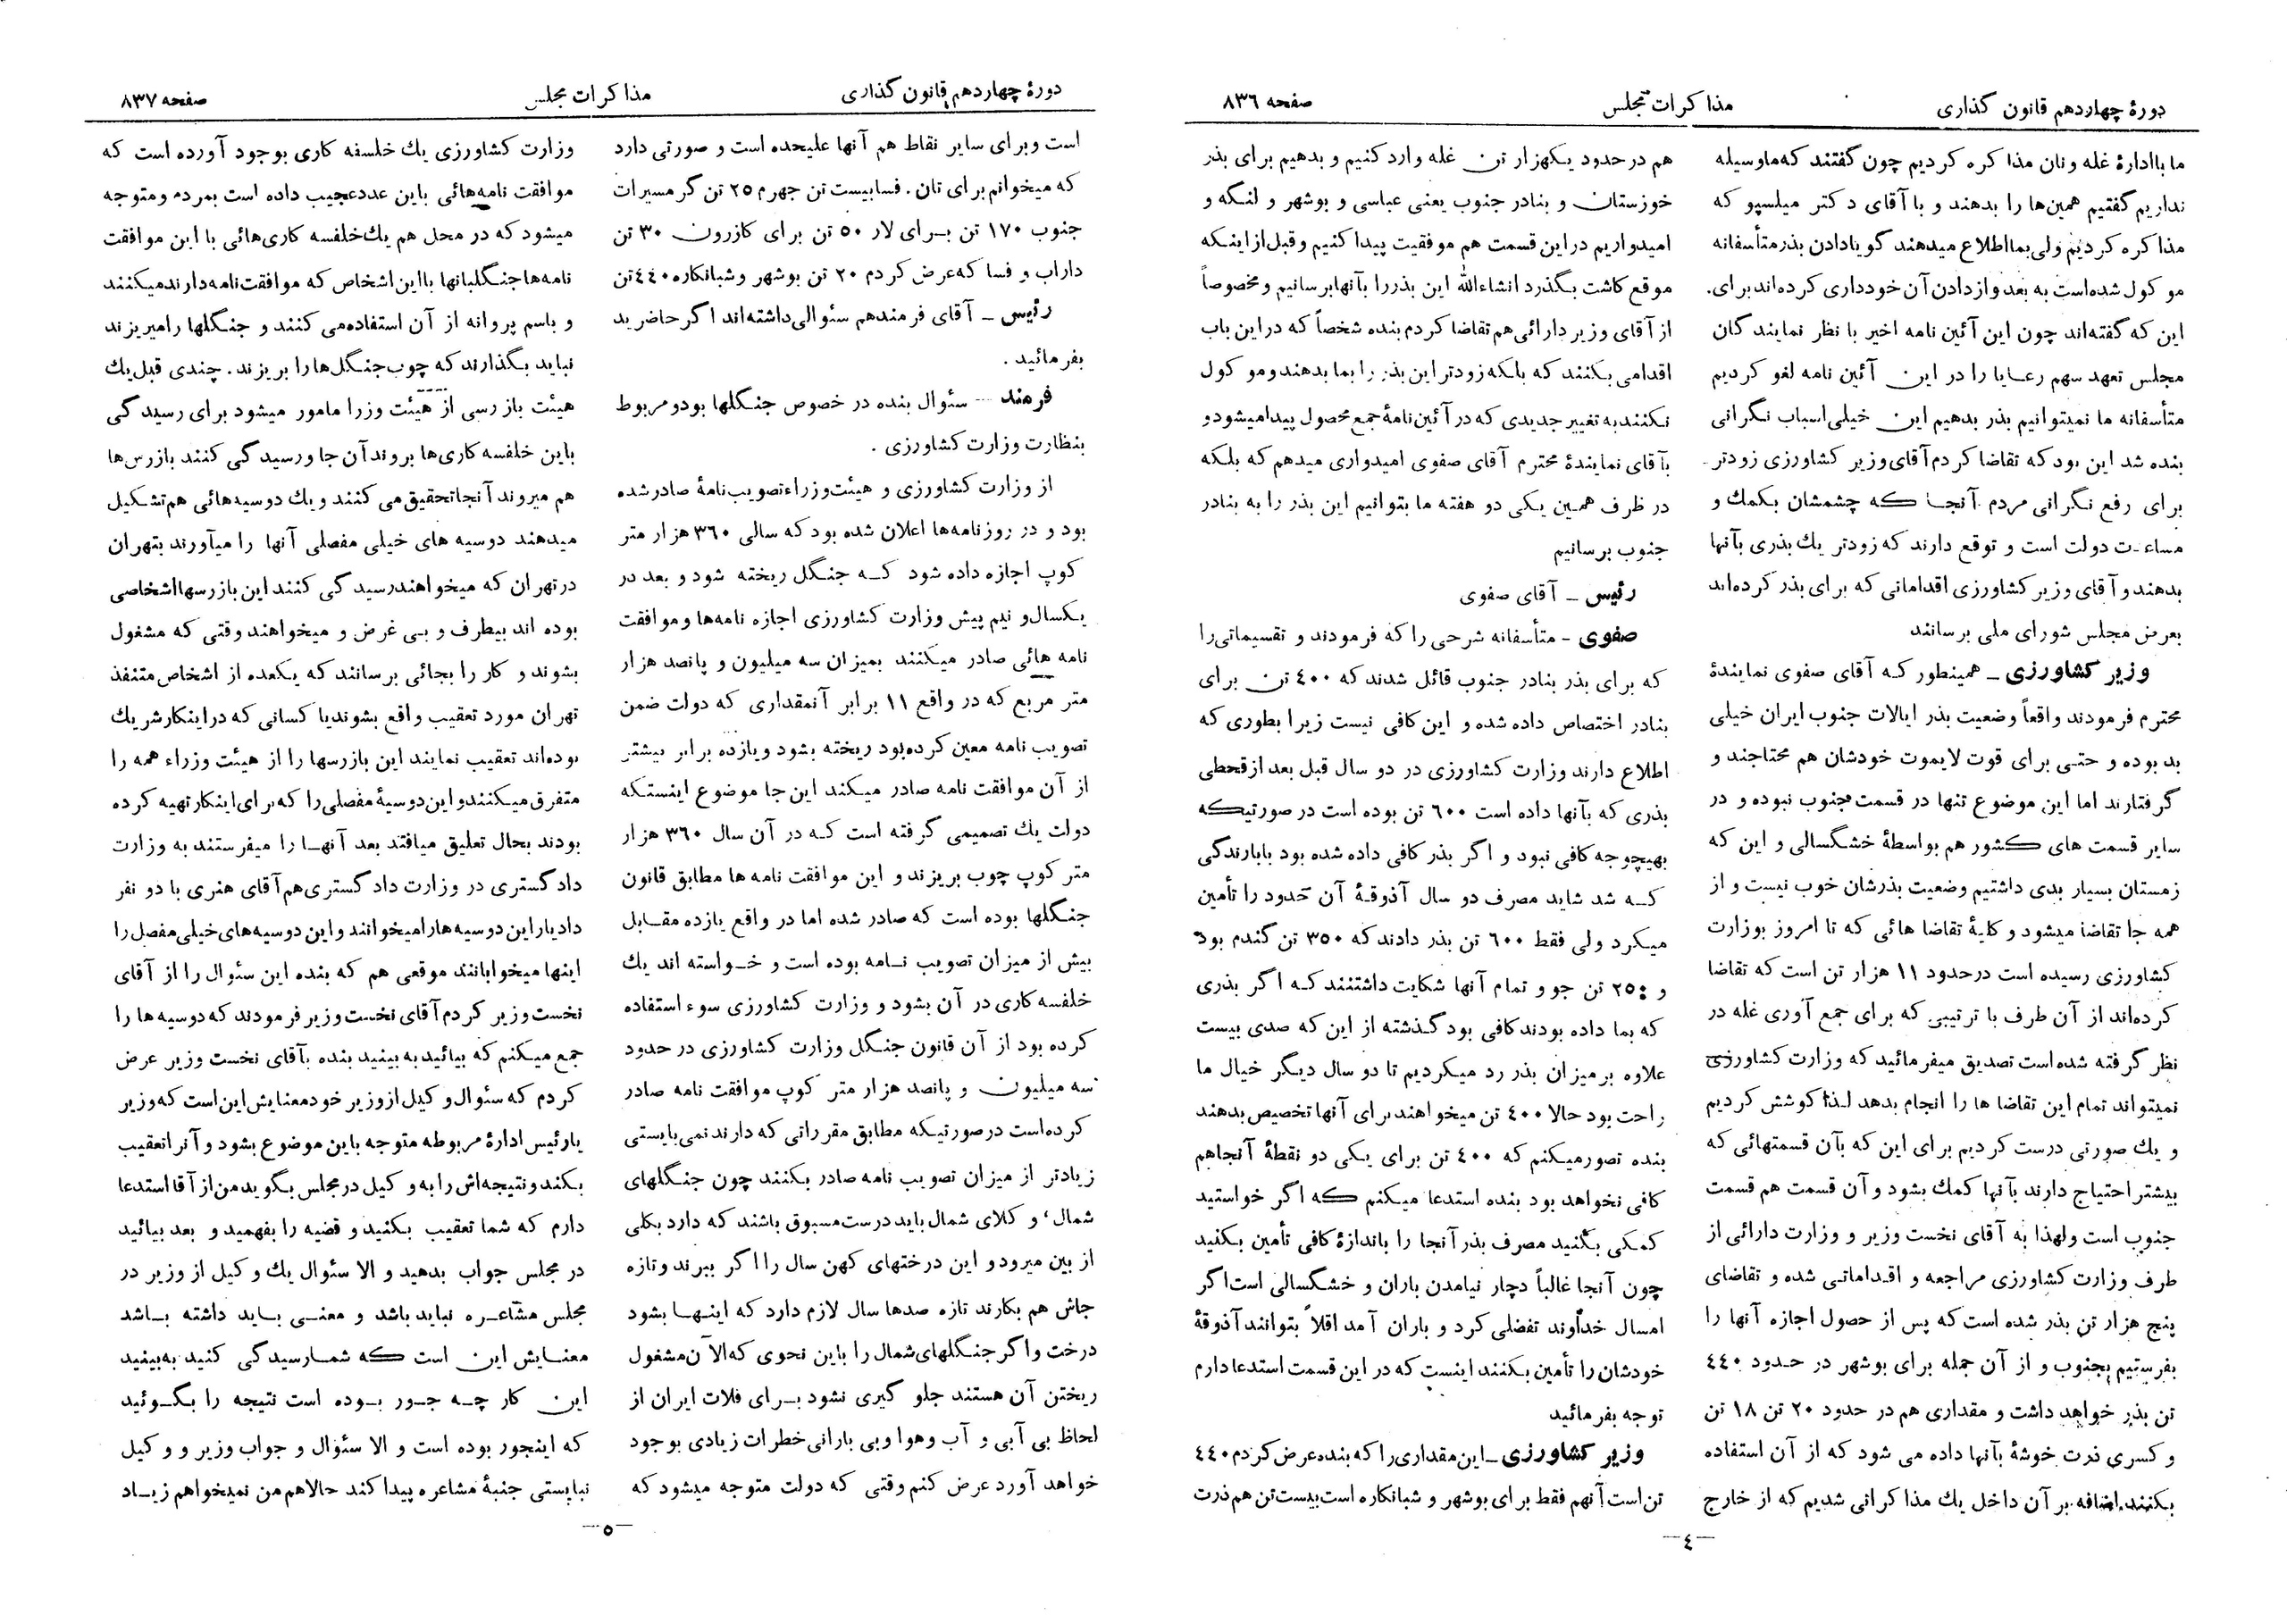 دورهٔ چهاردهم قانون گذاری
مذاکرات مجلس
صفحه ۸۳۶
ما باادارهٔ غله ونان مذاکره کردیم چون گفتند که‌ماوسیله
نداریم گفتیم همین‌ها را بدهند و با آقای دکتر میلسپو که
مذاکره کردیم ولی‌بمااطلاع میدهند گویادادن بذرمتأسفانه
موکول شده‌است به بعد وازدادن آن خودداری کرده‌اند برای.
این که گفته‌اند چون این آئین نامه اخیر با نظر نمایندگان
مجلس تعهد سهم رعایا را در این آئین نامه لغو کردیم
متأسفانه ما نمیتوانیم بذر بدهیم این خیلی‌اسباب نگرانی
بنده شد این بود که تقاضا کردم آقای وزیر کشاورزی زودتر
برای رفع نگرانی مردم آنجا که چشمشان بکمك و
مساعدت دولت است و توقع دارند که زودتر یك بذری بآنها
بدهند و آقای وزیر کشاورزی اقداماتی که برای بذر کرده‌اند
بعرض مجلس شورای ملی برسانند
وزیر کشاورزی ـ همینطور که آقای صفوی نمایندهٔ
محترم فرمودند واقعاً وضعیت بذر ایالات جنوب ایران خیلی
بد بوده و حتی برای قوت لایموت خودشان هم محتاجند و
گرفتارند اما این موضوع تنها در قسمت جنوب نبوده و در
سایر قسمت های کشور هم بواسطهٔ خشگسالی و این که
زمستان بسیار بدی داشتیم وضعیت بذرشان خوب نیست و از
همه جا تقاضا میشود و کلیهٔ تقاضا هائی که تا امروز بوزارت
کشاورزی رسیده است درحدود ۱۱ هزار تن است که تقاضا
کرده‌اند از آن طرف با ترتیبی که برای جمع آوری غله در
نظر گرفته شده‌است تصدیق میفرمائید که وزارت کشاورزی
نمیتواند تمام این تقاضا ها را انجام بدهد لذا کوشش کردیم
و یك صورتی درست کردیم برای این که بآن قسمتهائی که
بیشتر احتیاج دارند بآنها کمك بشود و آن قسمت هم قسمت
جنوب است ولهذا به آقای نخست وزیر و وزارت دارائی از
طرف وزارت کشاورزی مراجعه و اقداماتی شده و تقاضای
پنج هزار تن بذر شده است که پس از حصول اجازه آنها را
بفرستیم بجنوب و از آن جمله برای بوشهر در حدود ۴۴۰
تن بذر خواهد داشت و مقداری هم در حدود ۲۰ تن ۱۸ تن
و کسری ذرت خوشهٔ بآنها داده می شود که از آن استفاده
بکنند. اضافه بر آن داخل یك مذاکراتی شدیم که از خارج
هم در حدود یکهزار تن غله وارد کنیم و بدهیم برای بذر
خوزستان و بنادر جنوب یعنی عباسی و بوشهر و لنگه و
امیدواریم در این قسمت هم موفقیت پیدا کنیم و قبل از اینکه
موقع کاشت بگذرد انشاءالله این بذررا بآنهابرسانیم و مخصوصاً
از آقای وزیر دارائی هم تقاضا کردم بنده شخصاً که دراین باب
اقدامی بکنند که بلکه زودتر این بذر را بما بدهند و موکول
نکنند به تغییر جدیدی که در آئین‌نامهٔ جمع محصول پیدا میشود و
بآقای نمایندهٔ محترم آقای صفوی امیدواری میدهم که بلکه
در ظرف همین یکی دو هفته ما بتوانیم این بذر را به بنادر
جنوب برسانیم
رئیس ـ آقای صفوی
صفوی ـ متأسفانه شرحی را که فرمودند و تقسیماتی را
که برای بذر بنادر جنوب قائل شدند که ۴۰۰ تن برای
بنادر اختصاص داده شده و این کافی نیست زیرا بطوری که
اطلاع دارند وزارت کشاورزی در دو سال قبل بعد از قحطی
بذری که بآنها داده است ۶۰۰ تن بوده است در صورتیکه
بهیچوجه کافی نبود و اگر بذر کافی داده شده بود بابارندگی
که شد شاید مصرف دو سال آذوقهٔ آن حدود را تأمین
میکرد ولی فقط ۶۰۰ تن بذر دادند که ۳۵۰ تن گندم بود
و ۲۵۰ تن جو و تمام آنها شکایت داشتند که اگر بذری
که بما داده بودند کافی بود گذشته از این که صدی بیست
علاوه بر میزان بذر رد میکردیم تا دو سال دیگر خیال ما
راحت بود حالا ۴۰۰ تن میخواهند برای آنها تخصیص بدهند
بنده تصور میکنم که ۴۰۰ تن برای یکی دو نقطهٔ آنجاهم
کافی نخواهد بود بنده استدعا میکنم که اگر خواستید
کمکی بکنید مصرف بذر آنجا را باندازهٔ کافی تأمین بکنید
چون آنجا غالباً دچار نیامدن باران و خشگسالی است اگر
امسال خداوند تفضلی کرد و باران آمد اقلاً بتوانند آذوقهٔ
خودشان را تأمین بکنند اینست که در این قسمت استدعا دارم
توجه بفرمائید
وزیر کشاورزی ـ این مقداری را که بنده عرض کردم ۴۴۰
تن است آنهم فقط برای بوشهر و شبانکاره است بیست تن هم ذرت
ـ۴ـ
دورهٔ چهاردهم قانون گذاری
مذاکرات مجلس
صفحه ۸۳۷
است وبرای سایر نقاط هم آنها علیحده است و صورتی دارد
که میخوانم برای تان. فسابیست تن جهرم ۲۵ تن گرمسیرات
جنوب ۱۷۰ تن برای لار ۵۰ تن برای کازرون ۳۰ تن
داراب و فسا که عرض کردم ۲۰ تن بوشهر وشبانکاره ۴۴۰ تن
رئیس ـ آقای فرمندهم سئوالی داشته‌اند اگر حاضرید
بفرمائید.
فرمند ـ سئوال بنده در خصوص جنگلها بود و مربوط
بنظارت وزارت کشاورزی.
از وزارت کشاورزی و هیئت وزراء تصویب‌نامهٔ صادر شده
بود و در روزنامه‌ها اعلان شده بود که سالی ۳۶۰ هزار متر
کوپ اجازه داده شود که جنگل ریخته شود و بعد در
یکسال و نیم پیش وزارت کشاورزی اجازه نامه‌ها و موافقت
نامه هائی صادر میکنند بمیزان سه میلیون و پانصد هزار
متر مربع که در واقع ۱۱ برابر آنمقداری که دولت ضمن
تصویب نامه معین کرده بود ریخته بشود ویازده برابر بیشتر
از آن موافقت نامه صادر میکند این جا موضوع اینستکه
دولت یك تصمیمی گرفته است که در آن سال ۳۶۰ هزار
متر کوپ چوب بریزند و این موافقت نامه ها مطابق قانون
جنگلها بوده است که صادر شده اما در واقع یازده مقابل
بیش از میزان تصویب نامه بوده است و خواسته اند یك
خلسفه کاری در آن بشود و وزارت کشاورزی سوء استفاده
کرده بود از آن قانون جنگل وزارت کشاورزی در حدود
سه میلیون و پانصد هزار متر کوپ موافقت نامه صادر
کرده‌است درصورتیکه مطابق مقرراتی که دارند نمی‌بایستی
زیادتر از میزان تصویب نامه صادر بکنند چون جنگلهای
شمال، و کلای شمال باید درست مسبوق باشند که دارد بکلی
از بین میرود و این درختهای کهن سال را اگر ببرند و تازه
جاش هم بکارند تازه صدها سال لازم دارد که اینها بشود
درخت و اگر جنگلهای شمال را باین نحوی که الآن مشغول
ریختن آن هستند جلو گیری نشود برای فلات ایران از
لحاظ بی آبی و آب وهوا وبی بارانی خطرات زیادی بوجود
خواهد آورد عرض کنم وقتی که دولت متوجه میشود که
وزارت کشاورزی یك خلسفه کاری بوجود آورده است که
موافقت نامه‌هائی باین عدد عجیب داده است بمردم و متوجه
میشود که در محل هم یك خلسفه کاری‌هائی با این موافقت
نامه‌ها جنگلبانها بااین اشخاص که موافقت‌نامه دارند میکنند
و باسم پروانه از آن استفاده می کنند و جنگلها را میریزند
نباید بگذارند که چوب جنگل‌ها را بریزند. چندی قبل یك
هیئت بازرسی از هیئت وزرا مامور میشود برای رسیدگی
باین خلفسه کاری‌ها بروند آن جا ورسیدگی کنند بازرس‌ها
هم میروند آنجا تحقیق می کنند و یك دوسیه‌هائی هم تشکیل
میدهند دوسیه های خیلی مفصلی آنها را میآورند بتهران
درتهران که میخواهند رسیدگی کنند این بازرسها اشخاصی
بوده اند بیطرف و بی غرض و میخواهند وقتی که مشغول
بشوند و کار را بجائی برسانند که یکعده از اشخاص متنفذ
تهران مورد تعقیب واقع بشوند یا کسانی که در اینکار شریك
بوده‌اند تعقیب نمایند این بازرسها را از هیئت وزراء همه را
متفرق میکنند و این دوسیهٔ مفصلی را که برای اینکار تهیه کرده
بودند بحال تعلیق میافتد بعد آنها را میفرستند به وزارت
دادگستری در وزارت دادگستری هم آقای هنری با دو نفر
دادیار این دوسیه‌ها را میخوانند و این دوسیه‌های خیلی مفصل را
اینها میخوابانند موقعی هم که بنده این سئوال را از آقای
نخست وزیر کردم آقای نخست وزیر فرمودند که دوسیه ها را
جمع میکنم که بیائید به بینید بنده بآقای نخست وزیر عرض
کردم که سئوال و کیل از وزیر خود معنایش این است که وزیر
یارئیس ادارهٔ مربوطه متوجه باین موضوع بشود و آنرا تعقیب
بکند و نتیجه‌اش را به و کیل در مجلس بگوید من از آقا استدعا
دارم که شما تعقیب بکنید و قضیه را بفهمید و بعد بیائید
در مجلس جواب بدهید و الا سئوال یك و کیل از وزیر در
مجلس مشاعره نباید باشد و معنی باید داشته باشد
معنایش این است که شما رسیدگی کنید به بینید
این کار چه جور بوده است نتیجه را بگوئید
که اینجور بوده است و الا سئوال و جواب وزیر و وکیل
نبایستی جنبهٔ مشاعره پیدا کند حالاهم من نمیخواهم زیاد
ـ۵ـ